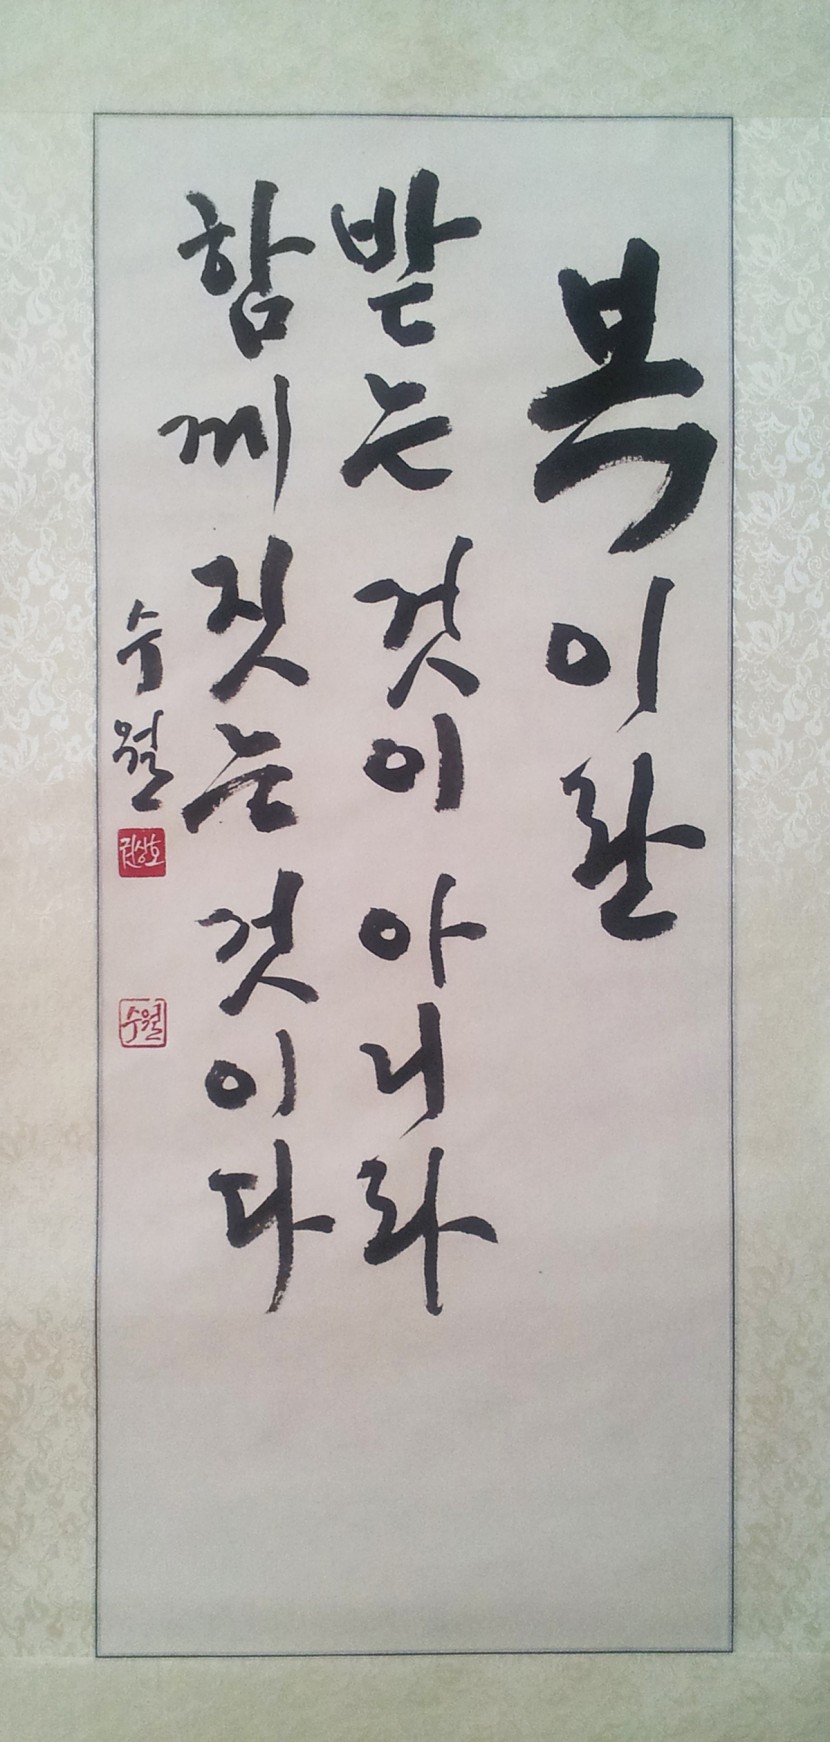 복이란
받는 것이 아니라
함께 짓는 것이다
수월
권상호
수월